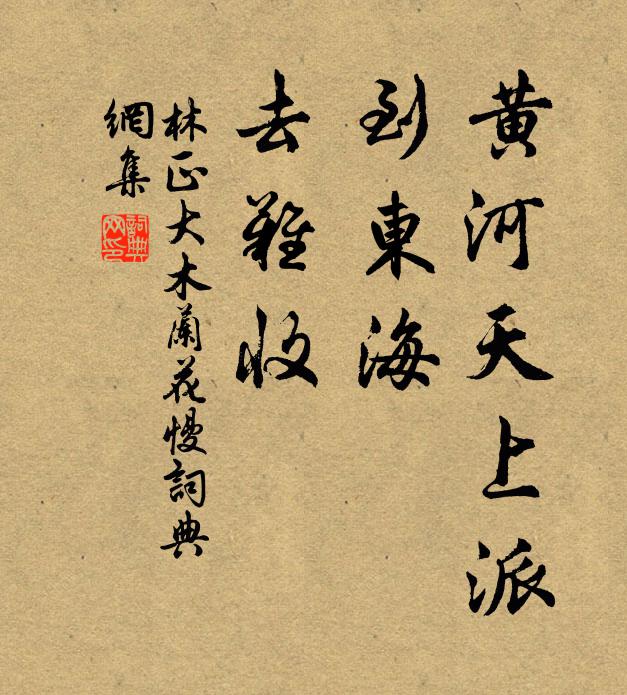 黄河天上派
到東海
去難收
林正大木蘭花慢詞典
網集
詞典网印